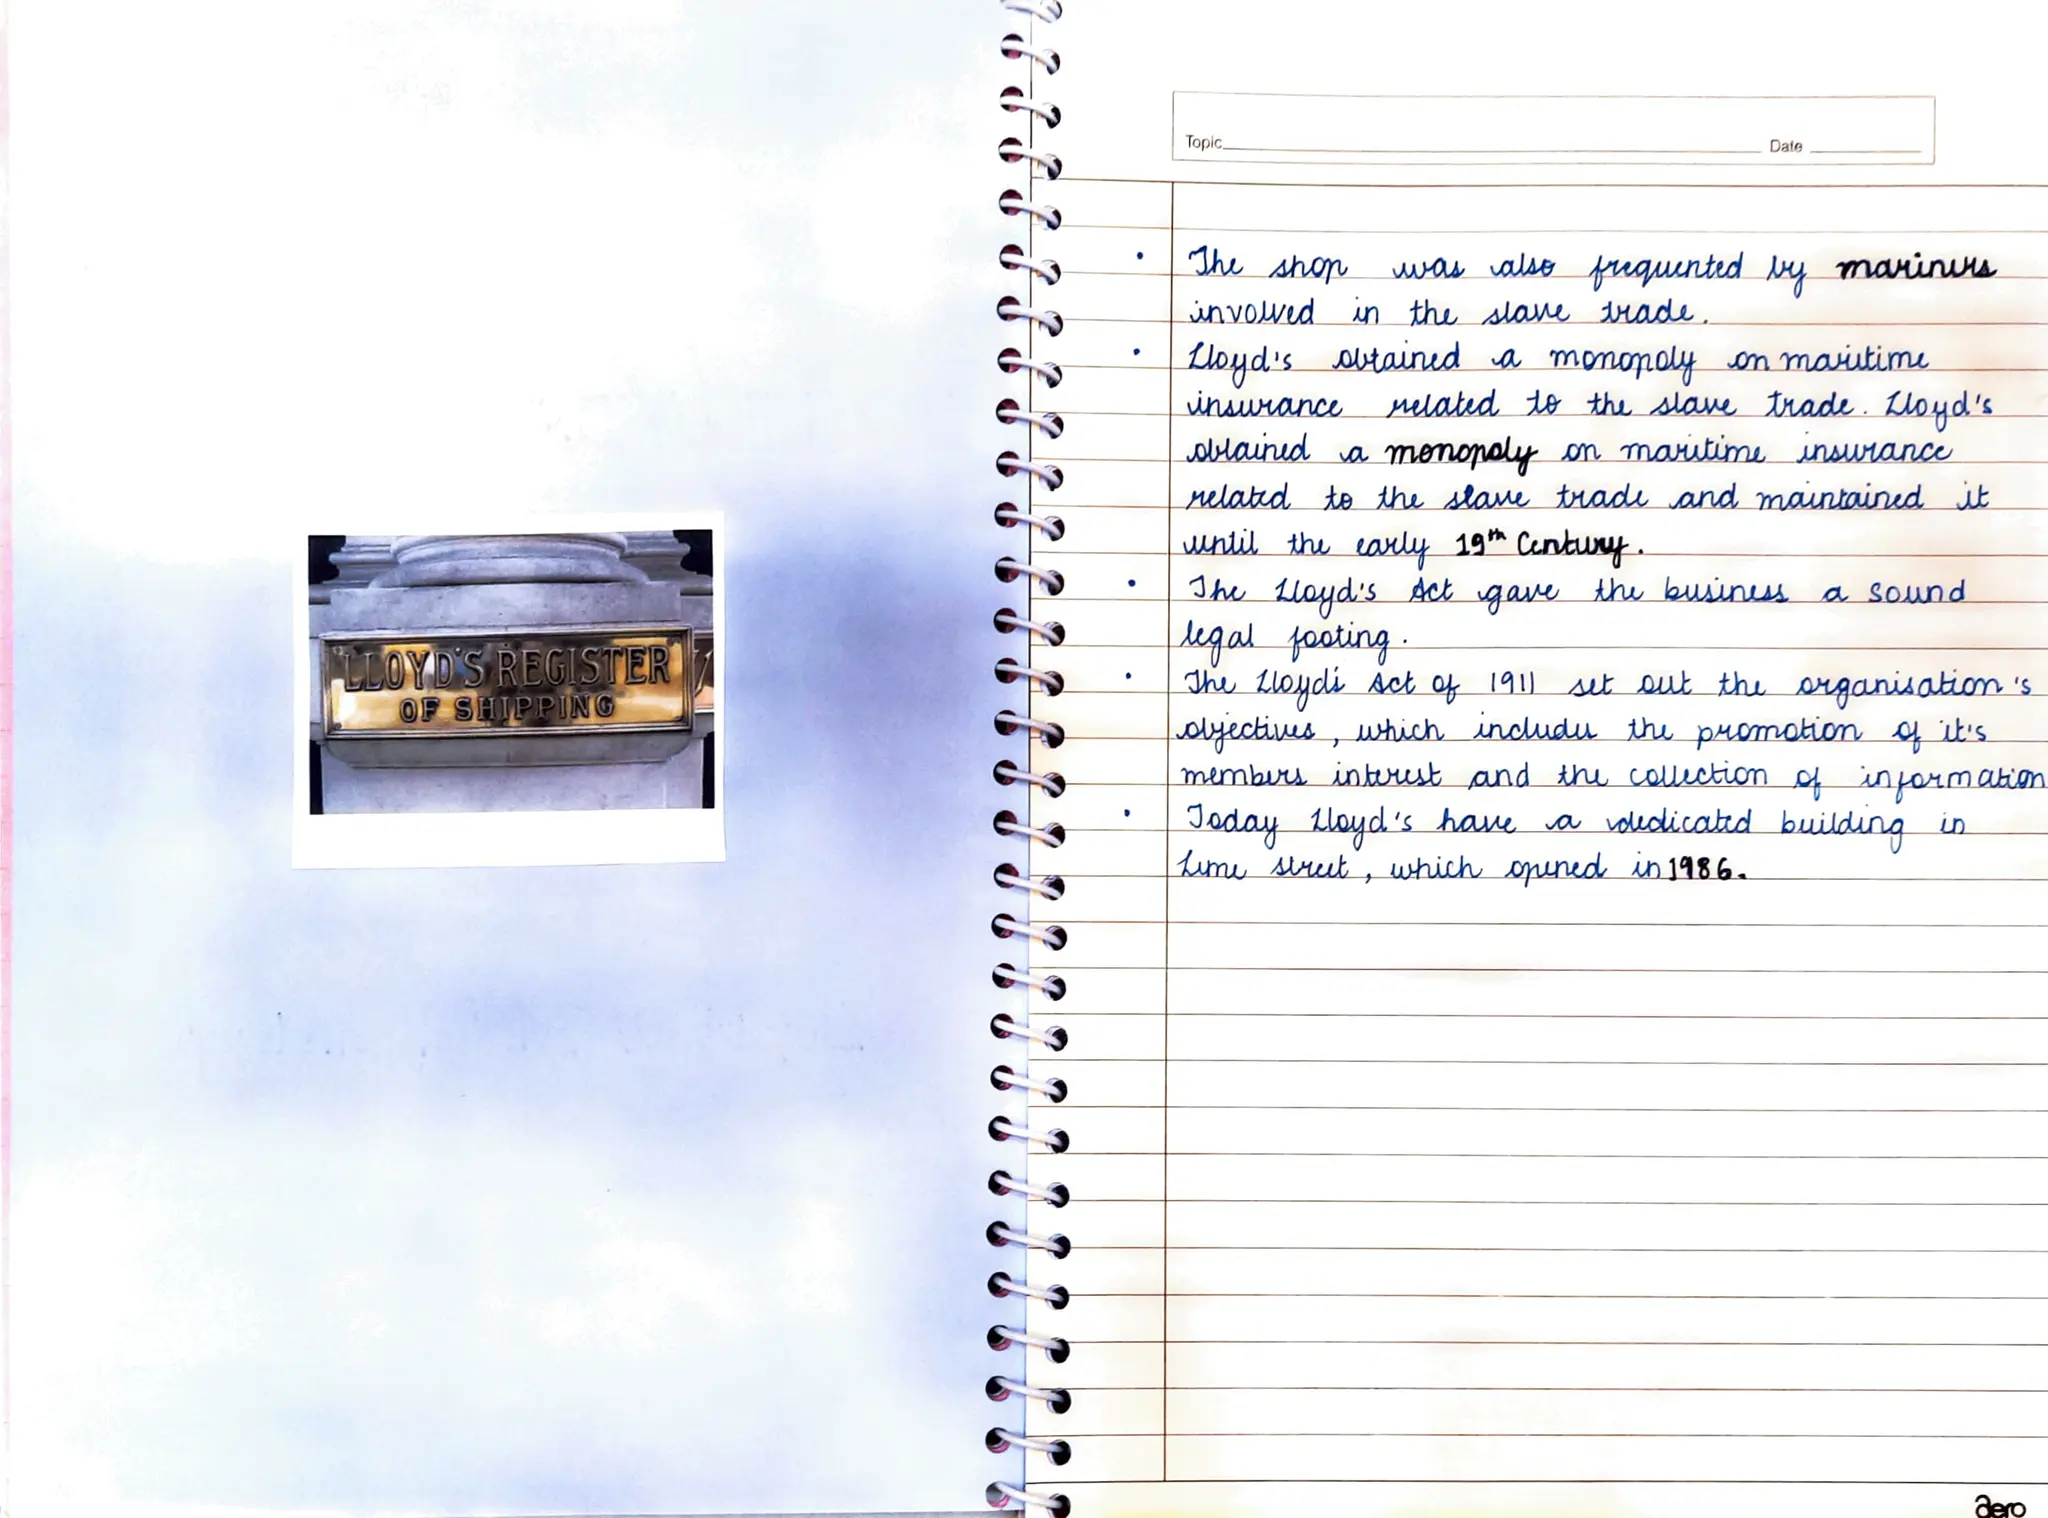 LLOYD'S REGISTER
OF SHIPPING
Topic
Date
• The shop was also frequented by mariners
involved in the slave trade.
• Lloyd's obtained a monopoly on maritime
insurance related to the slave trade. Lloyd's
obtained a monopoly on maritime insurance
related to the slave trade and maintained it
until the early 19th Century.
• The Lloyd's Act gave the business a sound
legal footing.
• The Lloyd's Act of 1911 set out the organisation's
objectives, which includes the promotion of it's
members interest and the collection of information
• Today Lloyd's have a dedicated building in
Lime street, which opened in 1986.
aero